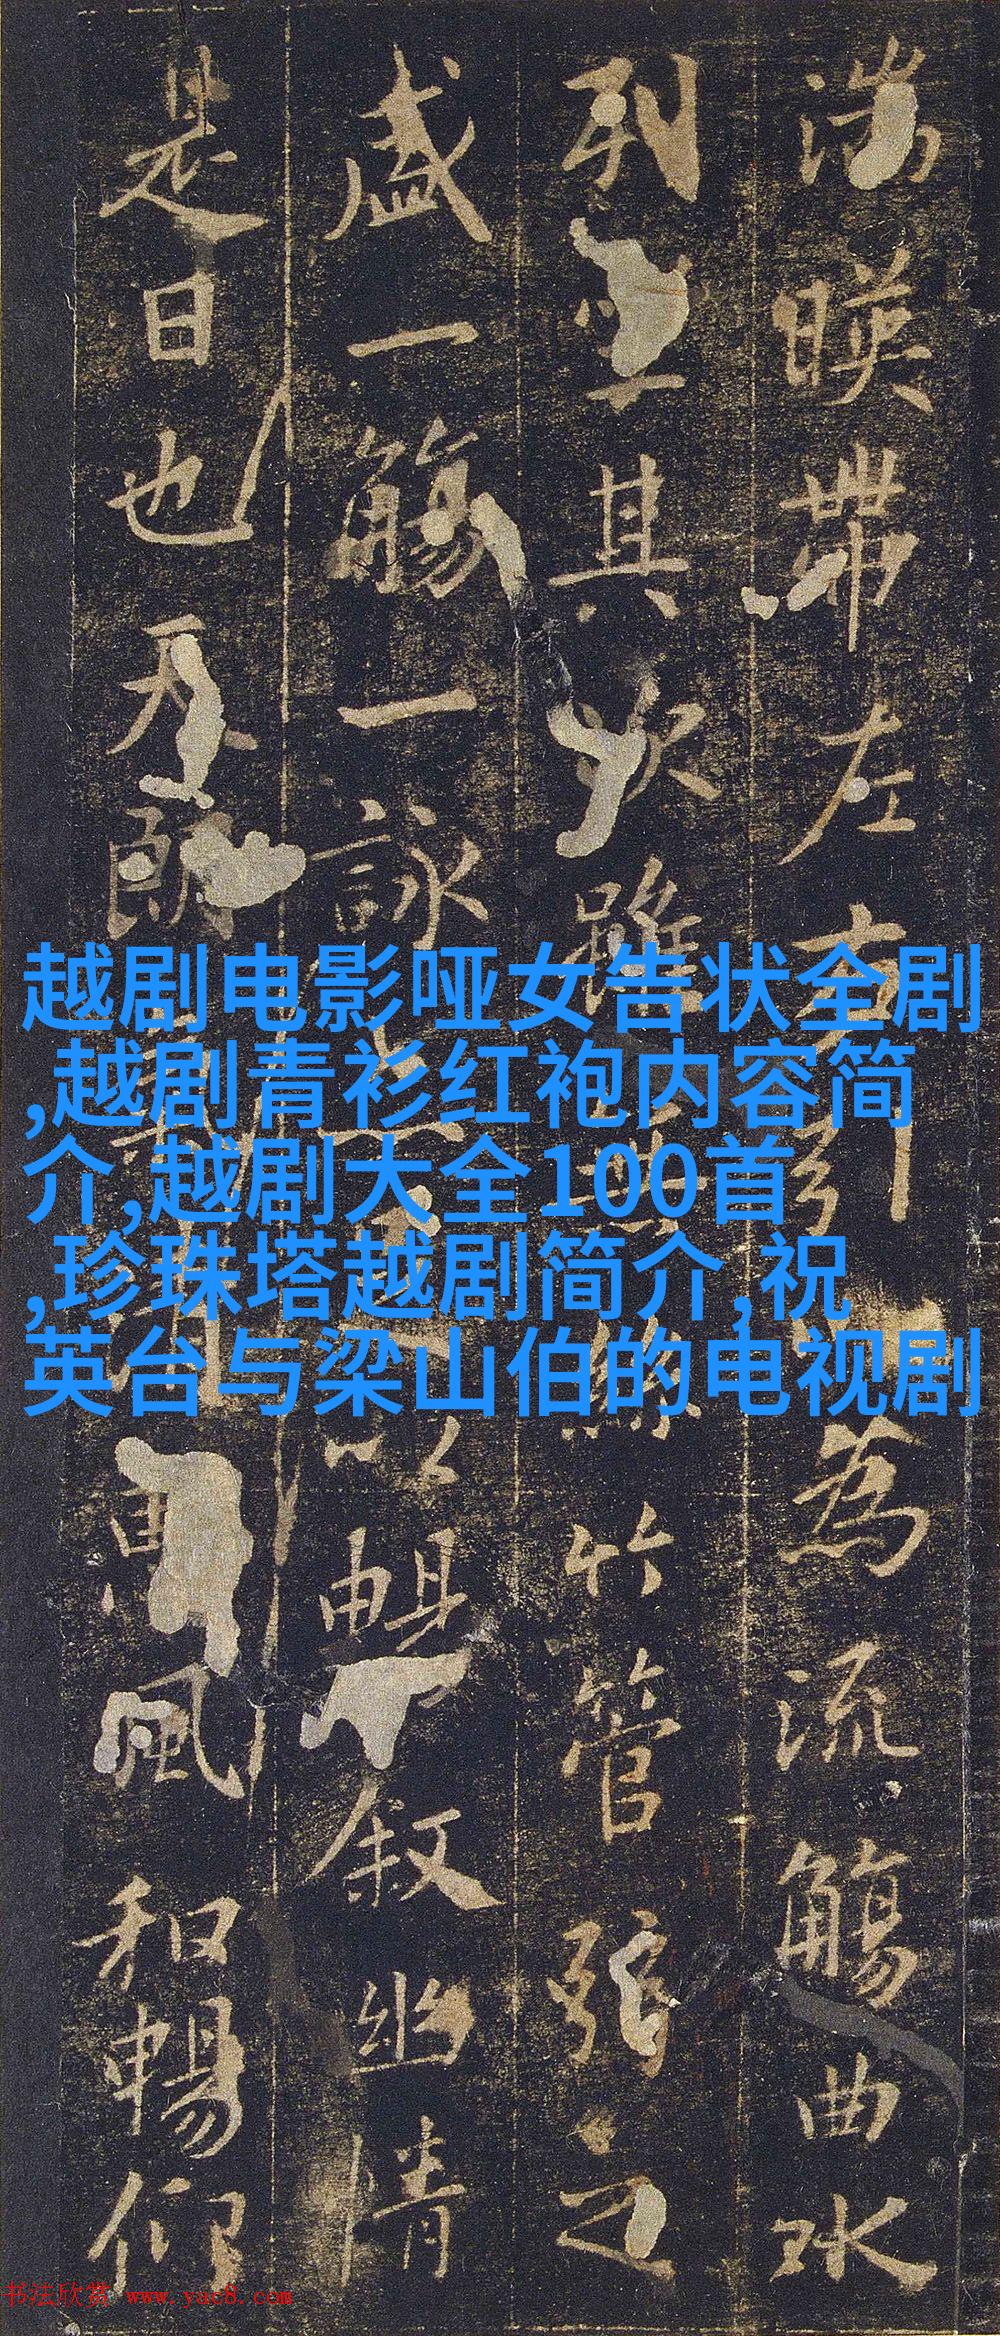 湍暎帶左右引為流觴曲水
列坐其次雖無絲竹管弦之
盛一觴一詠以暢敘幽情
是日也天朗惠風和暢仰
越剧电影哑女告状全剧
,越剧青衫红袍内容简
介,越剧大全100首
,珍珠塔越剧简介,祝
英台与梁山伯的电视剧
书法欣赏 www.yac8.com